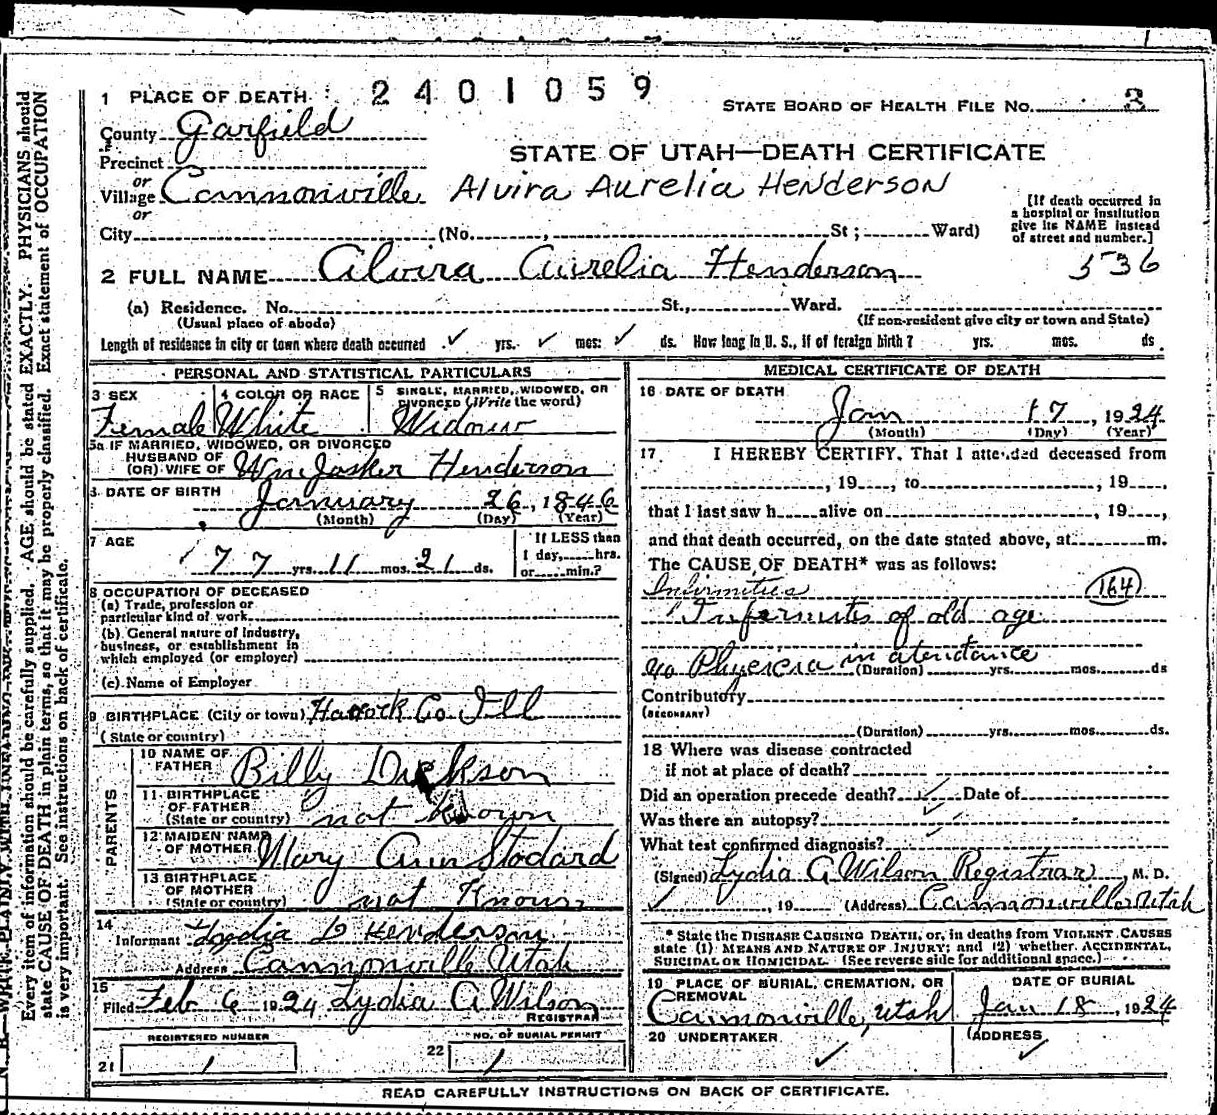 2 4 0 1 0 5 9
1 PLACE OF DEATH
STATE BOARD OF HEALTH FILE NO. 3
County Garfield
Precinct
STATE OF UTAH—DEATH CERTIFICATE
or
Village Cannonville Alvira Aurelia Henderson
or
City (No. , St ; Ward)
[If death occurred in
a hospital or institution
give its NAME instead
of street and number.]
2 FULL NAME Alvira Aurelia Henderson 536
(a) Residence. No. St., Ward.
(Usual place of abode) (If non-resident give city or town and State)
Length of residence in city or town where death occurred ✓ yrs. ✓ mos. ✓ ds. How long in U. S., if of foreign birth? yrs. mos. ds.
PERSONAL AND STATISTICAL PARTICULARS
3 SEX 4 COLOR OR RACE 5 SINGLE, MARRIED, WIDOWED, OR
DIVORCED (Write the word)
Female White Widow
5a IF MARRIED, WIDOWED, OR DIVORCED
HUSBAND OF
(OR) WIFE OF Wm Jasker Henderson
DATE OF BIRTH January 26, 1846
(Month) (Day) (Year)
7 AGE 77 yrs. 11 mos. 21 ds.
If LESS than
1 day, hrs.
or min.?
8 OCCUPATION OF DECEASED
(a) Trade, profession or
particular kind of work
(b) General nature of industry,
business, or establishment in
which employed (or employer)
(c) Name of Employer
9 BIRTHPLACE (City or town) Co Ill
(State or country)
PARENTS
10 NAME OF
FATHER Billy Dickson
11 BIRTHPLACE
OF FATHER
(State or country) not Known
12 MAIDEN NAME
OF MOTHER Mary Ann Stodard
13 BIRTHPLACE
OF MOTHER
(State or country) not Known
14
Informant Lydia D Henderson
Address Cannonville Utah
15
Filed Feb 6 1924 Lydia A Wilson
REGISTRAR
REGISTERED NUMBER NO. OF BURIAL PERMIT
21 1 22 1
MEDICAL CERTIFICATE OF DEATH
16 DATE OF DEATH
Jan 17, 1924
(Month) (Day) (Year)
17 I HEREBY CERTIFY, That I attended deceased from
, 19 , to , 19 ,
that I last saw h alive on , 19 ,
and that death occurred, on the date stated above, at m.
The CAUSE OF DEATH* was as follows:
Infirmities 164
Infermites of old age
no Phycicia in atendance
(Duration) yrs. mos. ds
Contributory
(SECONDARY)
(Duration) yrs. mos. ds.
18 Where was disease contracted
if not at place of death?
Did an operation precede death? ✓ Date of
Was there an autopsy? ✓
What test confirmed diagnosis? ✓
(Signed) Lydia A Wilson Registrar, M. D.
✓ , 19 (Address) Cannonville Utah
* State the DISEASE CAUSING DEATH, or, in deaths from VIOLENT CAUSES
state (1) MEANS AND NATURE OF INJURY; and (2) whether ACCIDENTAL,
SUICIDAL OR HOMICIDAL. (See reverse side for additional space.)
19 PLACE OF BURIAL, CREMATION, OR
REMOVAL
Cannonville, Utah
DATE OF BURIAL
Jan 18, 1924
20 UNDERTAKER ✓
(ADDRESS ✓
READ CAREFULLY INSTRUCTIONS ON BACK OF CERTIFICATE.
Every item of information should be carefully supplied. AGE should be stated EXACTLY. PHYSICIANS should
state CAUSE OF DEATH in plain terms, so that it may be properly classified. Exact statement of OCCUPATION
is very important. See instructions on back of certificate.